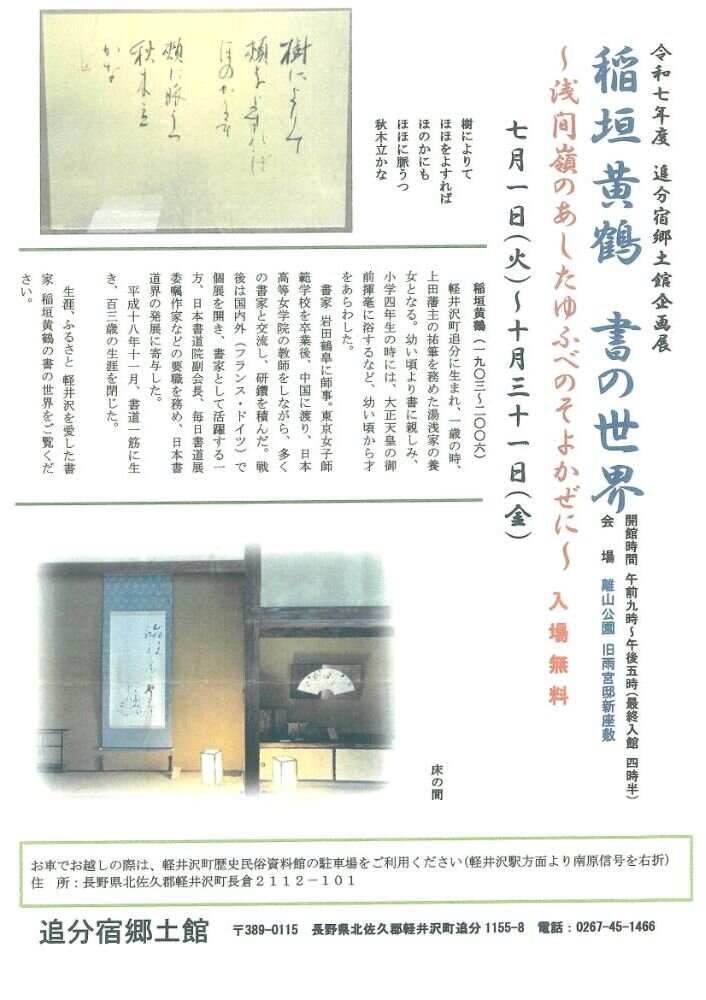 令和七年度 追分宿郷土館企画展
稲垣黄鶴 書の世界
～浅間嶺のあしたゆふべのそよかぜに～ 入場無料
七月一日(火)～十月三十一日(金)
開館時間 午前九時～午後五時(最終入館 四時半)
会 場 離山公園 旧雨宮邸新座敷
樹によりて
ほほをよすれば
ほのかにも
ほほに脈うつ
秋木立かな
稲垣黄鶴(一九〇三～二〇〇六)
軽井沢町追分に生まれ、一歳の時、
上田藩主の祐筆を務めた湯浅家の養
女となる。幼い頃より書に親しみ、
小学四年生の時には、大正天皇の御
前揮毫に浴するなど、幼い頃から才
をあらわした。
書家 岩田鶴皐に師事。東京女子師
範学校を卒業後、中国に渡り、日本
高等女学院の教師をしながら、多く
の書家と交流し、研鑽を積んだ。戦
後は国内外(フランス・ドイツ)で
個展を開き、書家として活躍する一
方、日本書道院副会長、毎日書道展
委嘱作家などの要職を務め、日本書
道界の発展に寄与した。
平成十八年十一月、書道一筋に生
き、百三歳の生涯を閉じた。
生涯、ふるさと 軽井沢を愛した書
家 稲垣黄鶴の書の世界をご覧くだ
さい。
床の間
お車でお越しの際は、軽井沢町歴史民俗資料館の駐車場をご利用ください(軽井沢駅方面より南原信号を右折)
住 所：長野県北佐久郡軽井沢町長倉２１１２－１０１
追分宿郷土館 〒389-0115 長野県北佐久郡軽井沢町追分 1155-8 電話：0267-45-1466